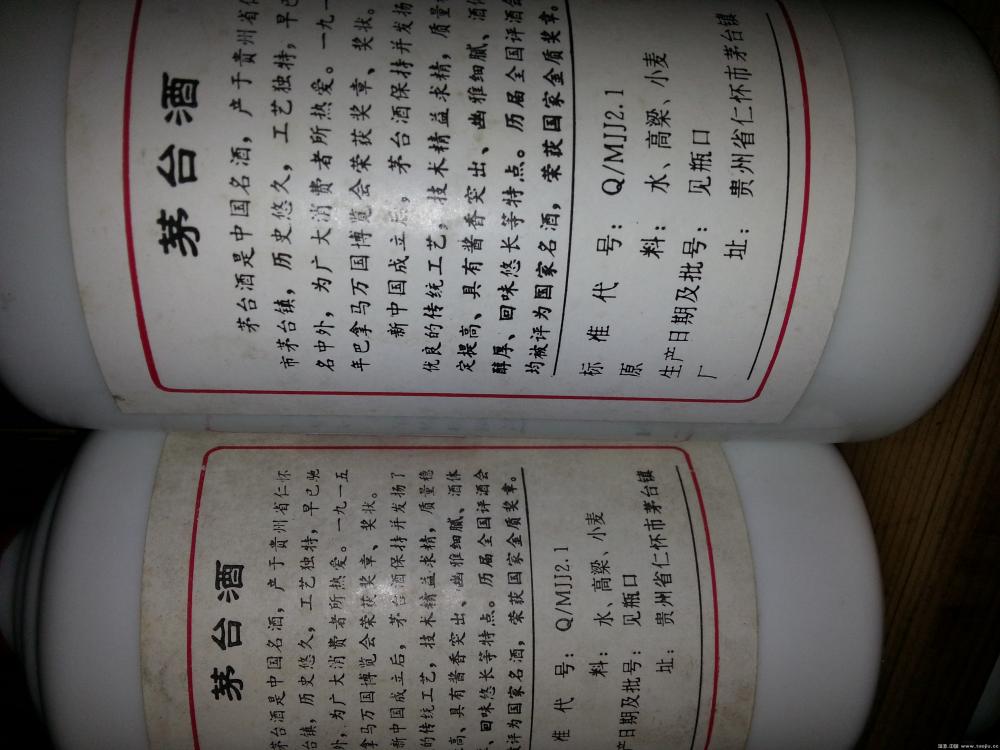 茅台酒
茅台酒是中国名酒，产于贵州省仁
市茅台镇，历史悠久，工艺独特，早已
名中外，为广大消费者所热爱。一九一
年巴拿马万国博览会荣获奖章、奖状。
新中国成立后，茅台酒保持并发扬
优良的传统工艺，技术精益求精，质量
定提高、具有酱香突出、幽雅细腻、酒体
醇厚、回味悠长等特点。历届全国评酒会
均被评为国家名酒，荣获国家金质奖章。
标准代号：Q/MJJ2.1
原料：水、高粱、小麦
生产日期及批号：见瓶口
厂址：贵州省仁怀市茅台镇
茅台酒
茅台酒是中国名酒，产于贵州省仁怀
台镇，历史悠久，工艺独特，早已驰
外，为广大消费者所热爱。一九一五
拿马万国博览会荣获奖章、奖状。
新中国成立后，茅台酒保持并发扬了
的传统工艺，技术精益求精，质量稳
高、具有酱香突出、幽雅细腻、酒体
、回味悠长等特点。历届全国评酒会
评为国家名酒，荣获国家金质奖章。
准代号：Q/MJJ2.1
料：水、高粱、小麦
产日期及批号：见瓶口
址：贵州省仁怀市茅台镇